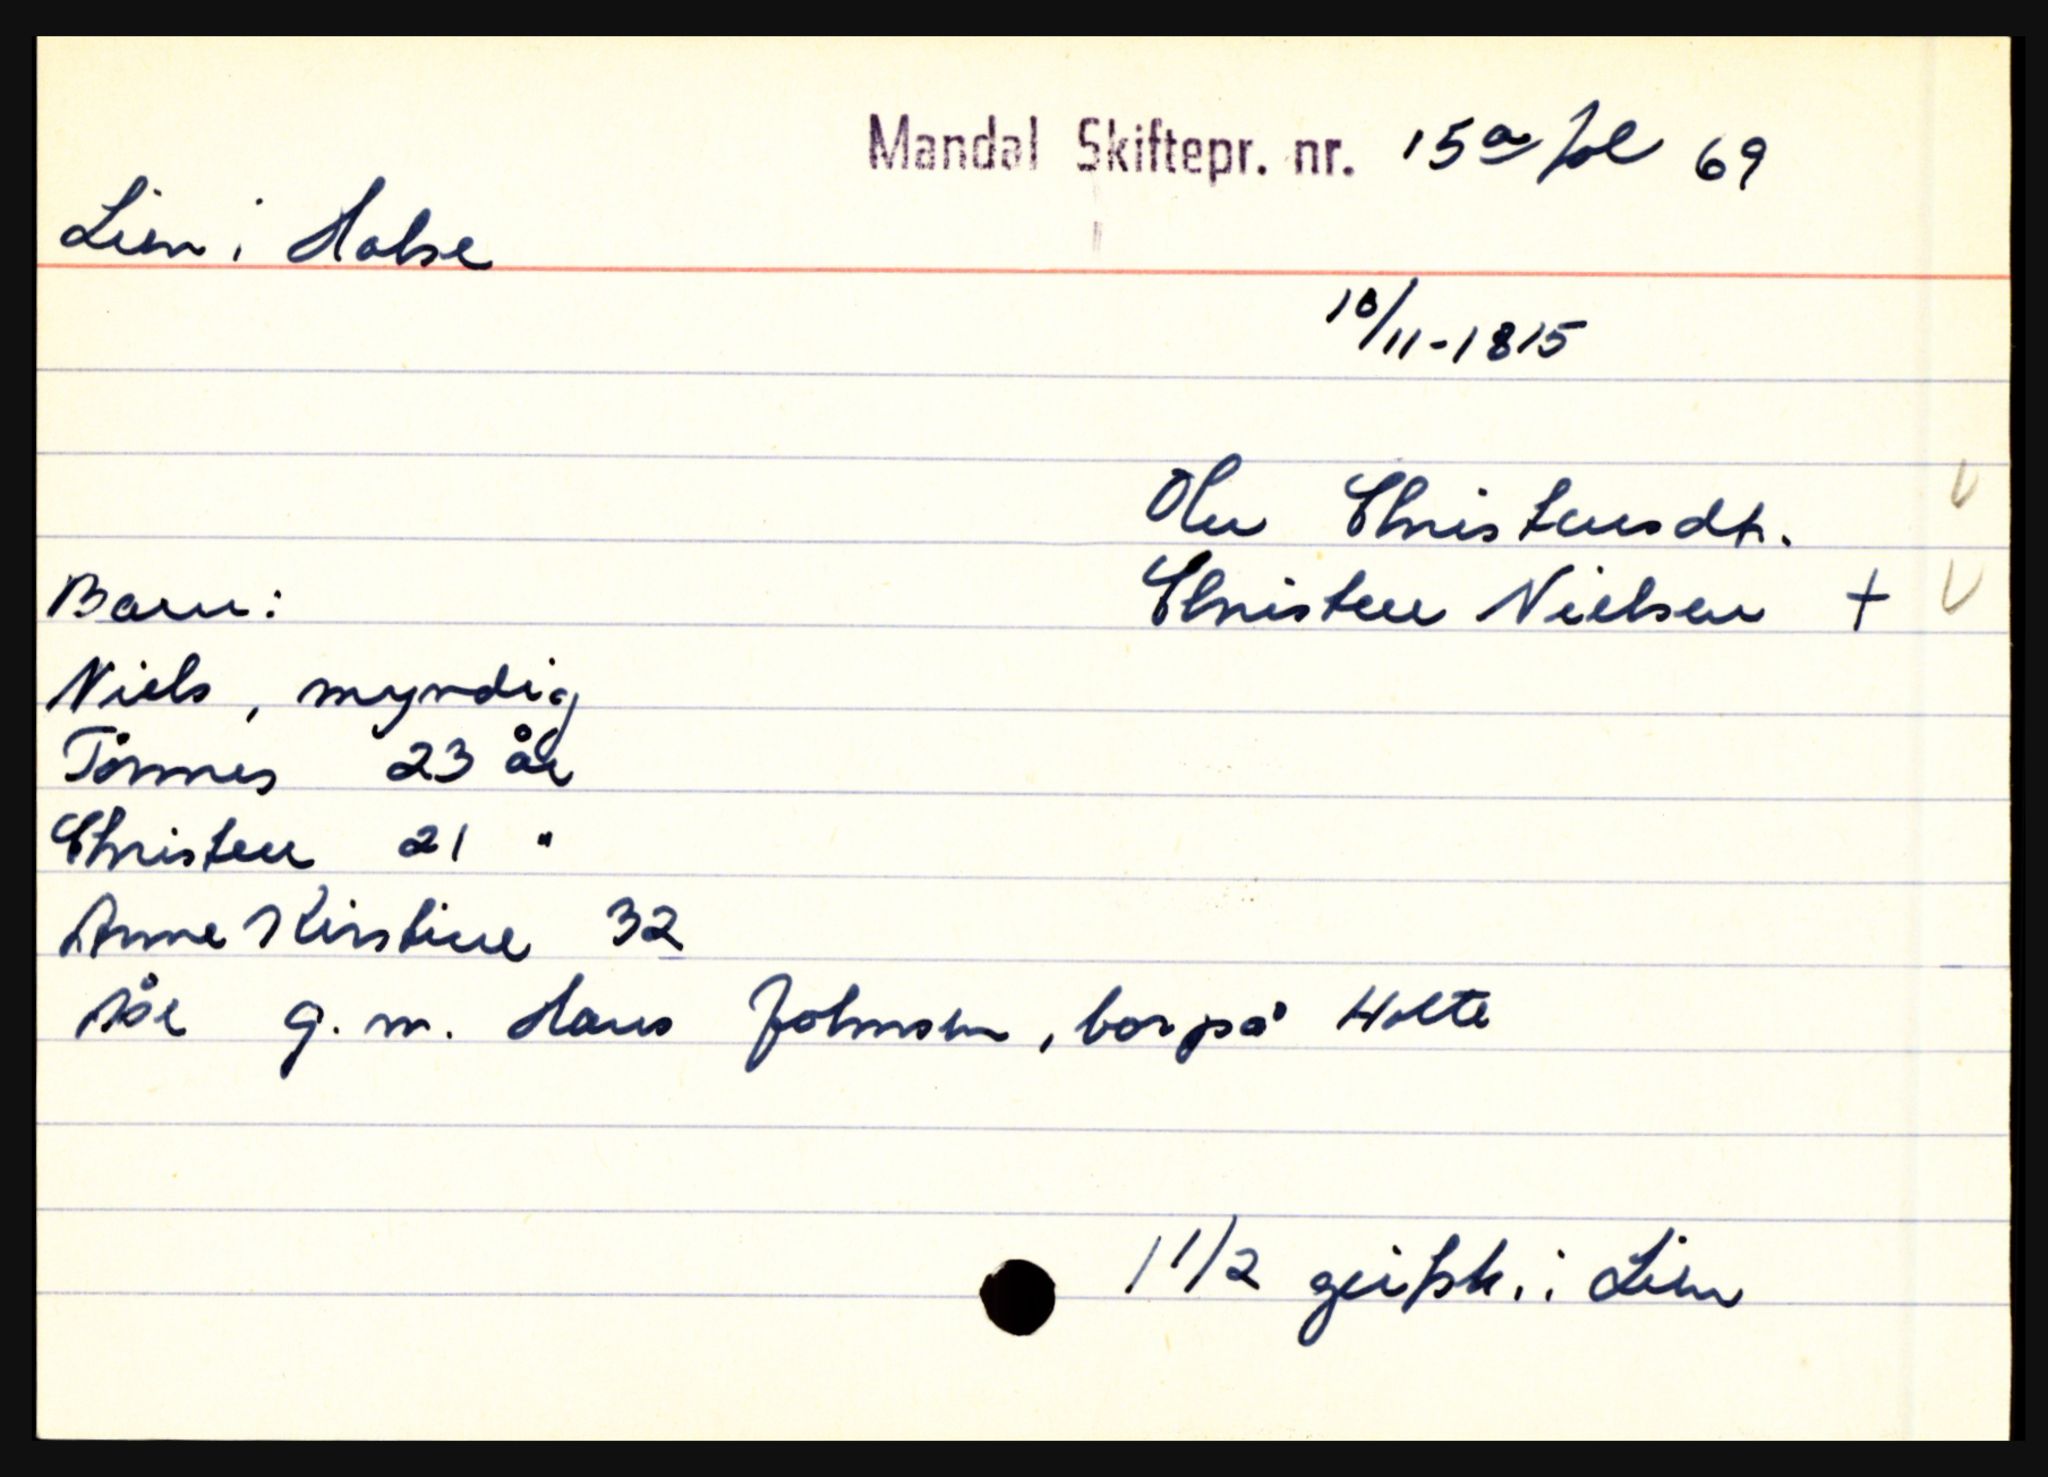 Mandal Skiftepr. nr. 15a fol 69
Lien i Halse
10/11-1815
Olu Christensdt.
Barn:
Christen Nielsen +
Niels, myndig
Tönnes 23 år
Christen 21 "
Anne Kirstine 32
Åse g. m. Hans Johnsen, bor på Holte
1 1/2 geißk. i Lien